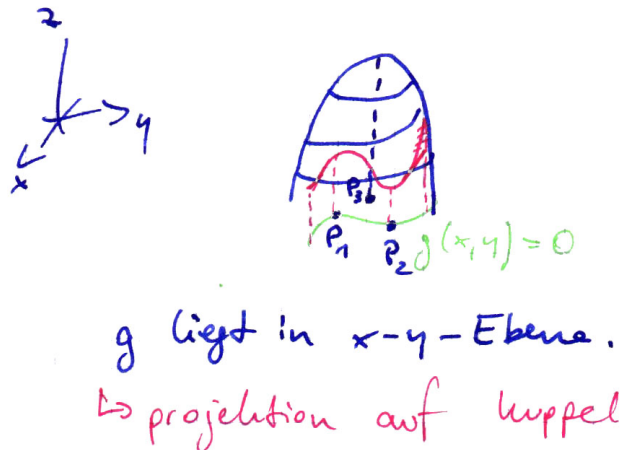 z
y
x
P3
P1
P2
g(x,y)=0
g liegt in x-y-Ebene.
↳ projektion auf kuppel